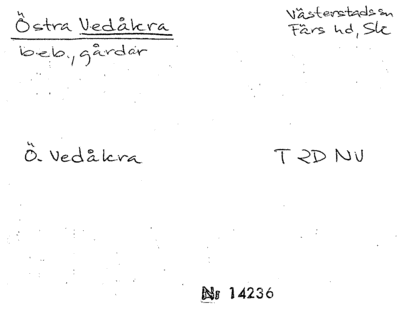 Östra Vedåkra
Västerstads sn
beb., gårdar
Färs hd, Sk
Ö. Vedåkra
T 2D NV
Nr 14236